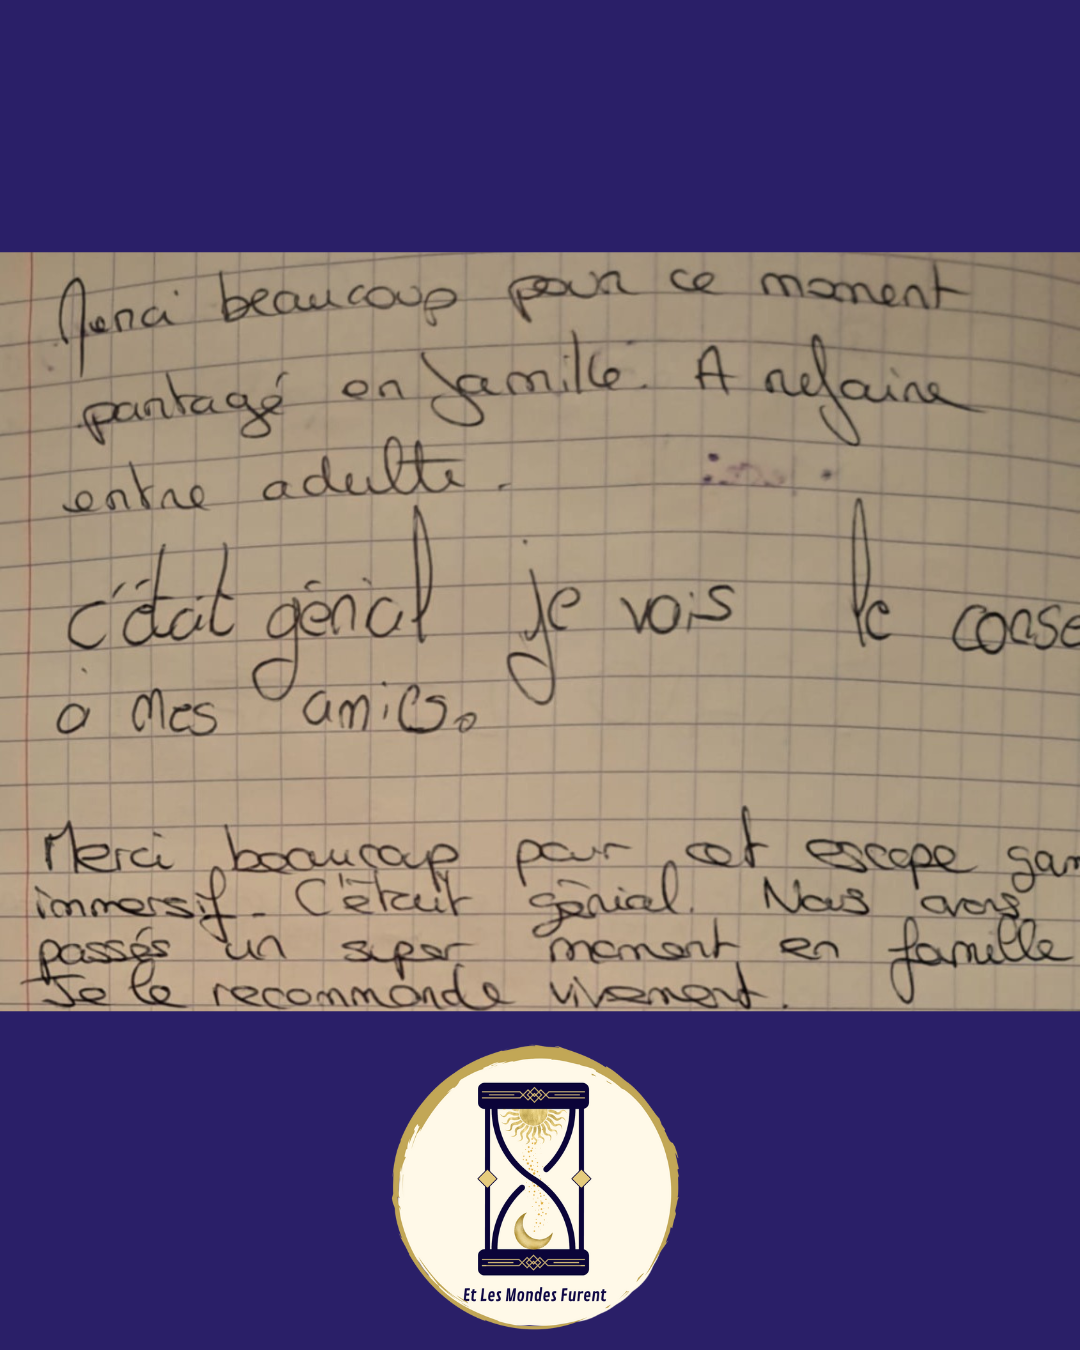 Merci beaucoup pour ce moment
partagé en famille. A refaire
entre adulte.
c'était génial je vois le
à mes amies.
Merci beaucoup pour cet escape
immersif. C'était génial. Nous avons
passés un super moment en famille
Je le recommande vivement.
Et Les Mondes Furent